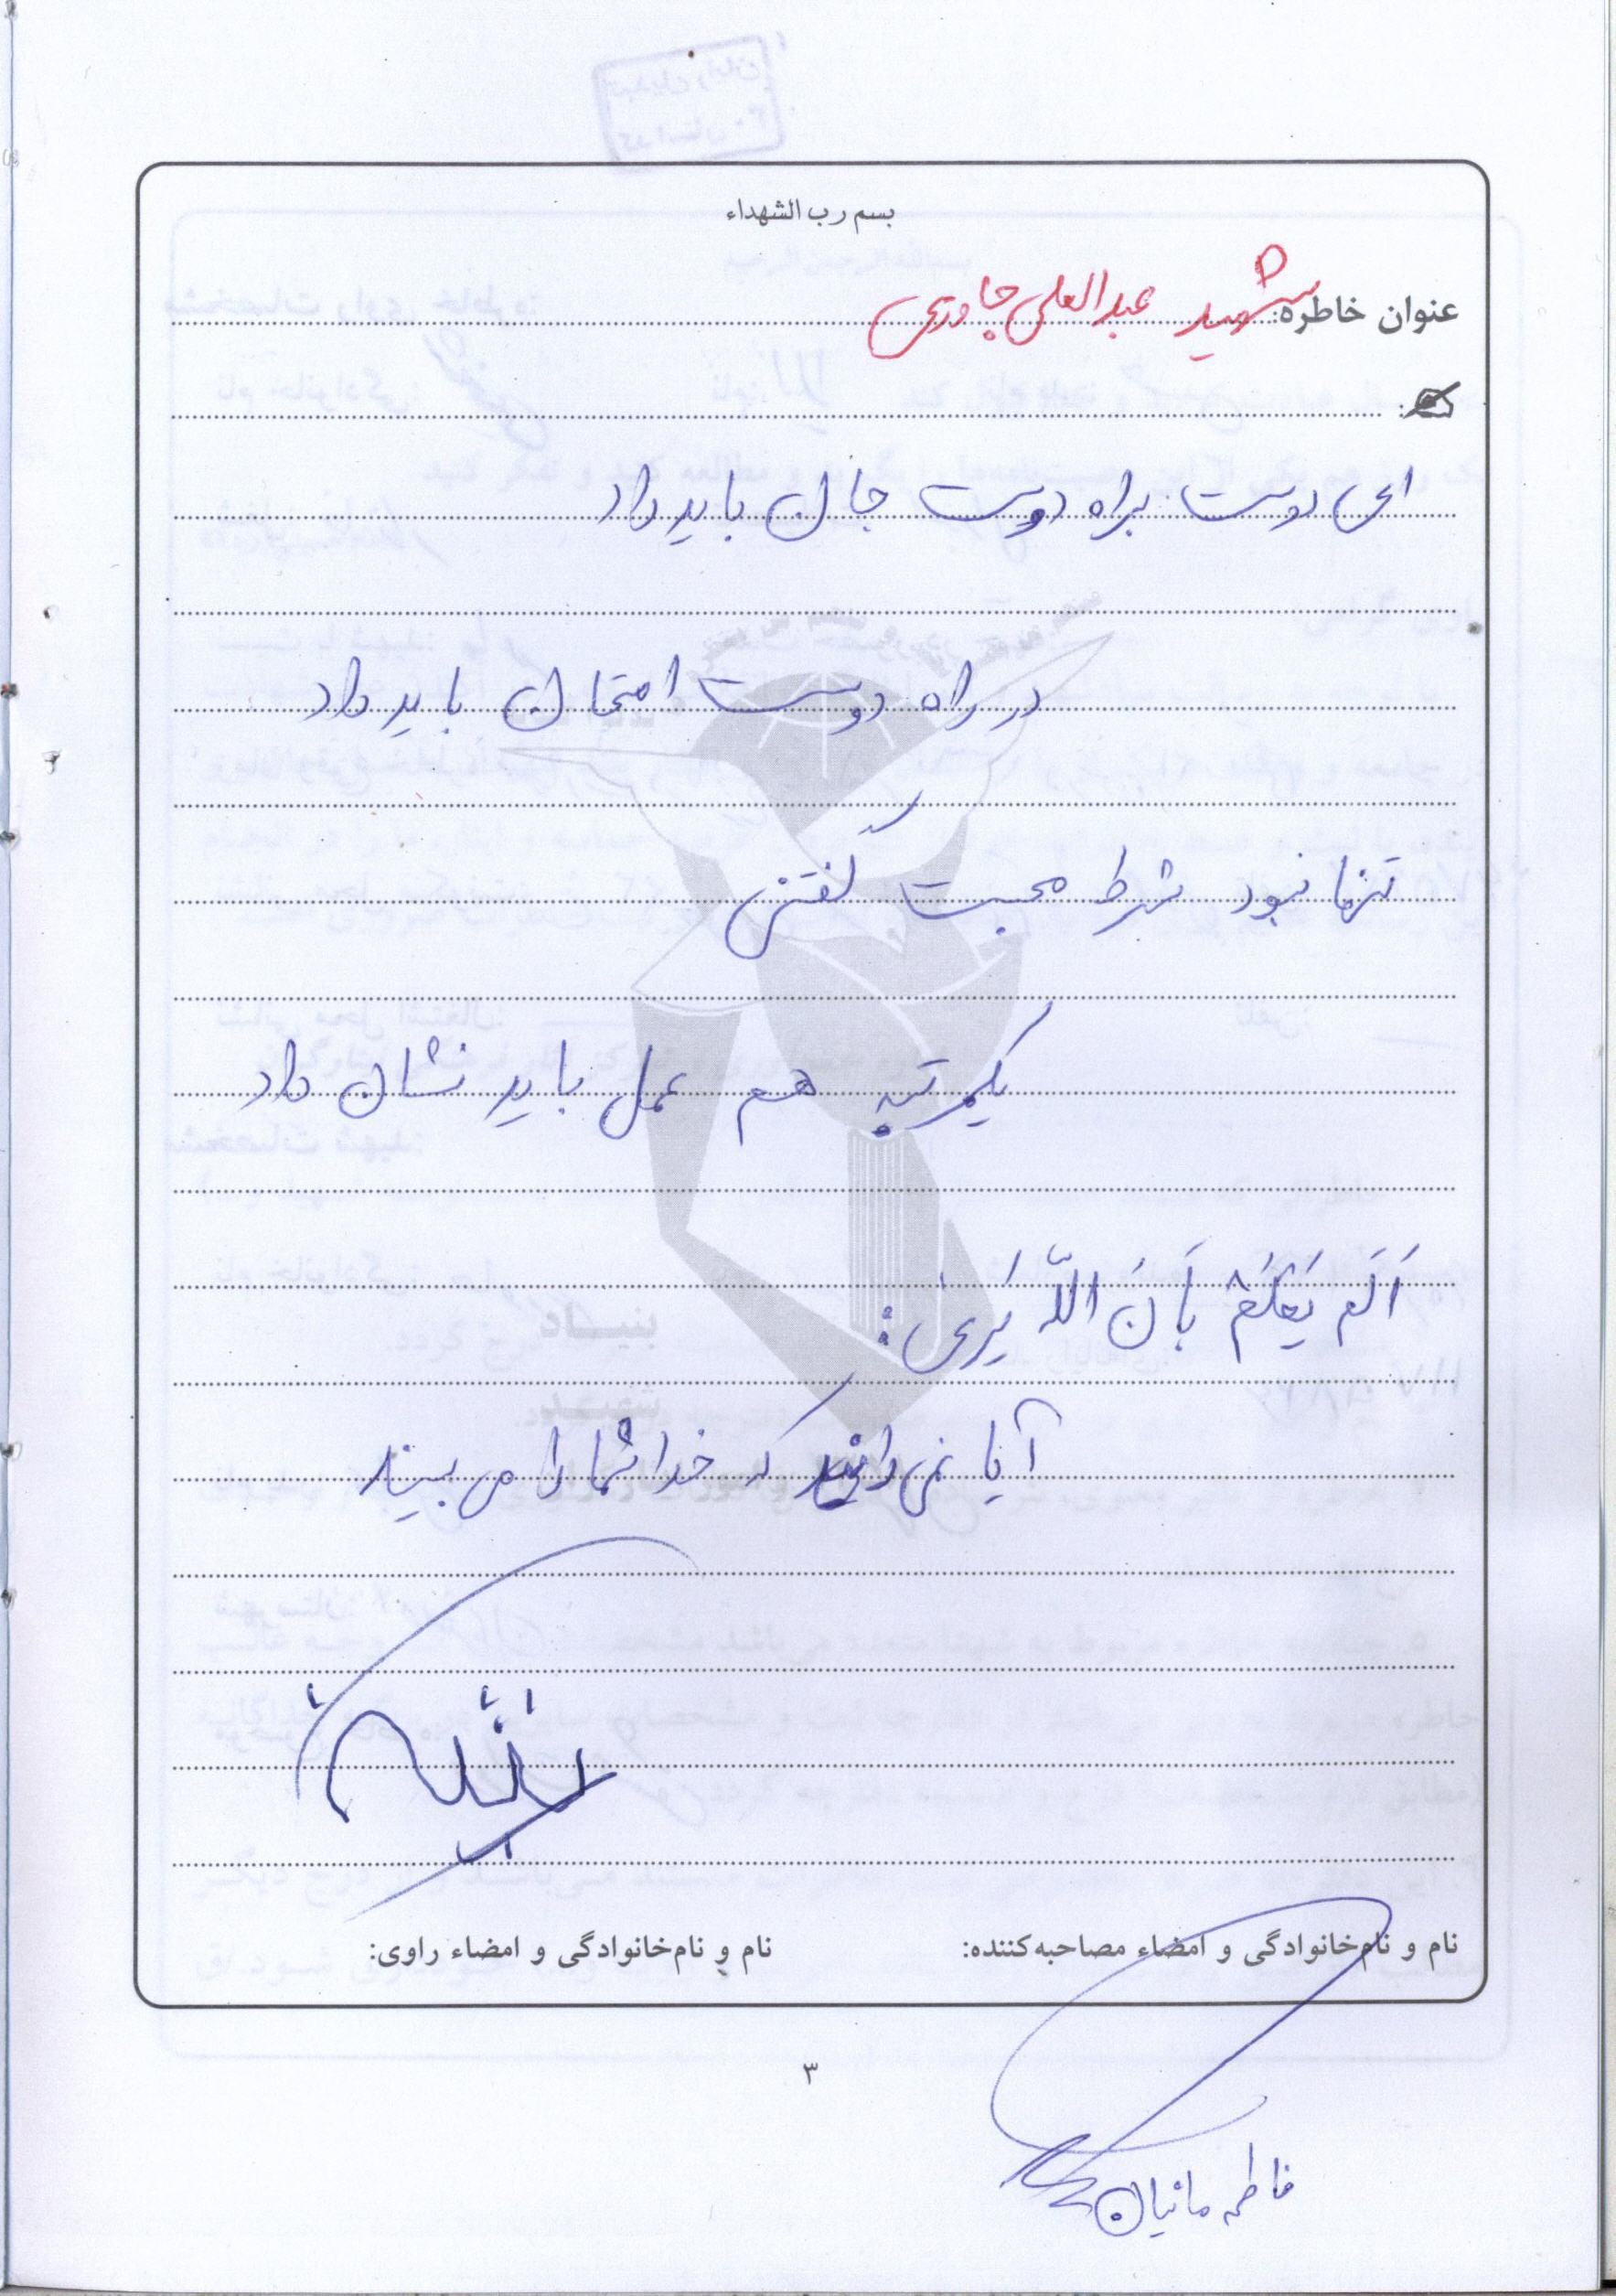 بسم رب الشهداء
عنوان خاطره: شهید عبدالعلی چاوری
ای دوست براه دوست جان باید داد
در راه دوست امتحان باید داد
تنها نبود شرط محبت گفتن
یکمرتبه هم عمل باید نشان داد
اَلَم یَعْلَمْ بِاَنَ اللّه یَری:
آیا نمی دانید که خدا شما را می بیند
نام و نام‌خانوادگی و امضاء مصاحبه‌کننده:
نام و نام‌خانوادگی و امضاء راوی:
۳
فاطمه مانیان